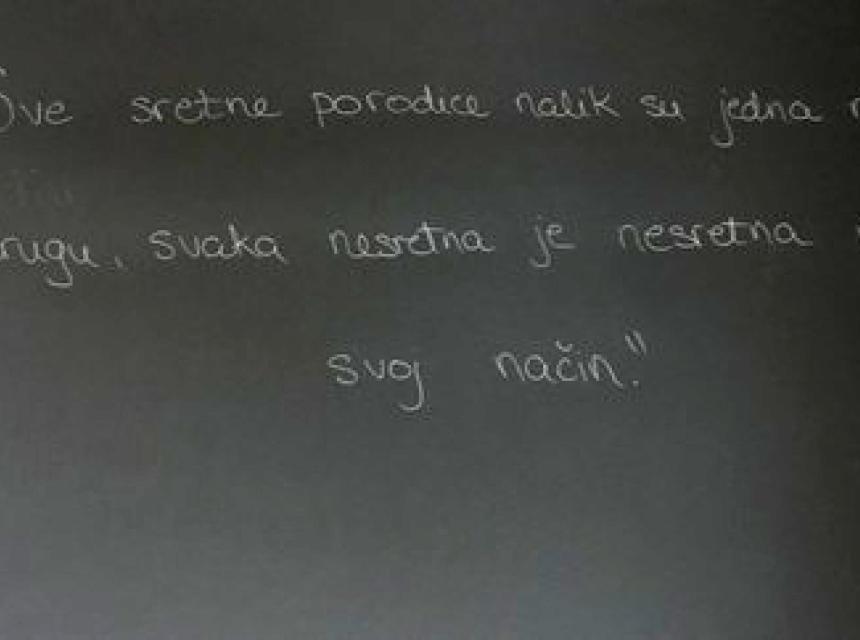 Ove sretne porodice nalik su jedna
rugu, svaka nesretna je nesretna
svoj način."